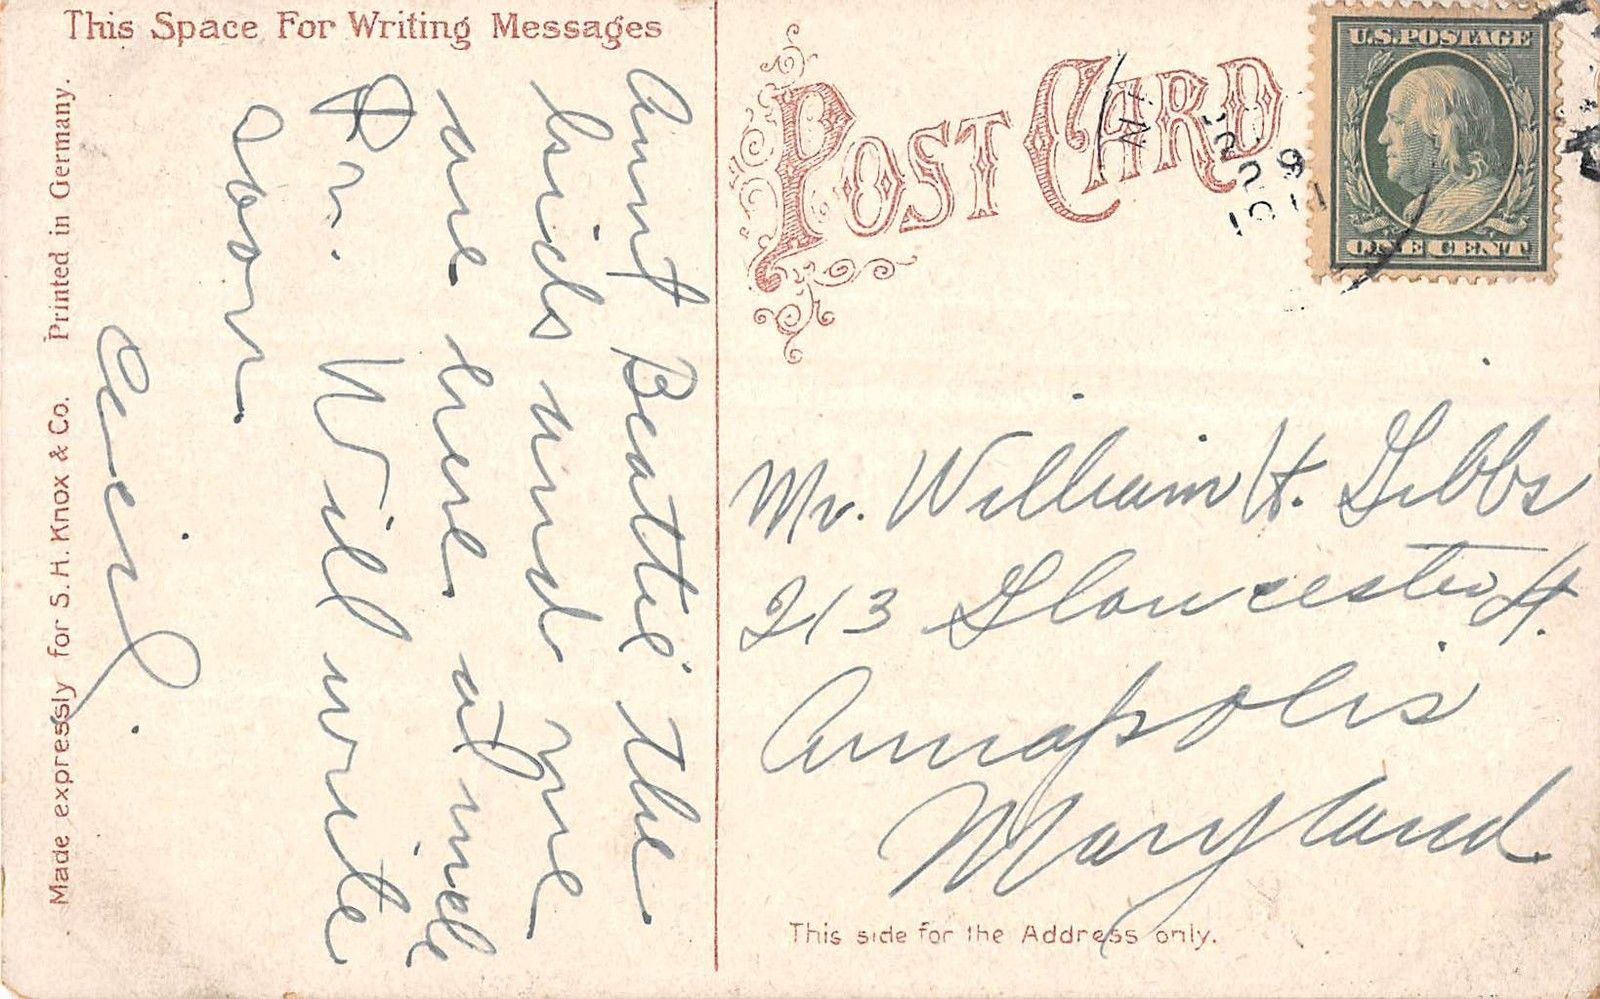 This Space For Writing Messages
Aunt Beattie the
kids and me
are here at
Pr. Will write
soon.
Cecil.
Made expressly for S.H. Knox & Co. Printed in Germany.
POST CARD
U.S. POSTAGE
ONE CENT
Mr. William H. Gibbs
213 Gloucester St.
Annapolis
Maryland
This side for the Address only.